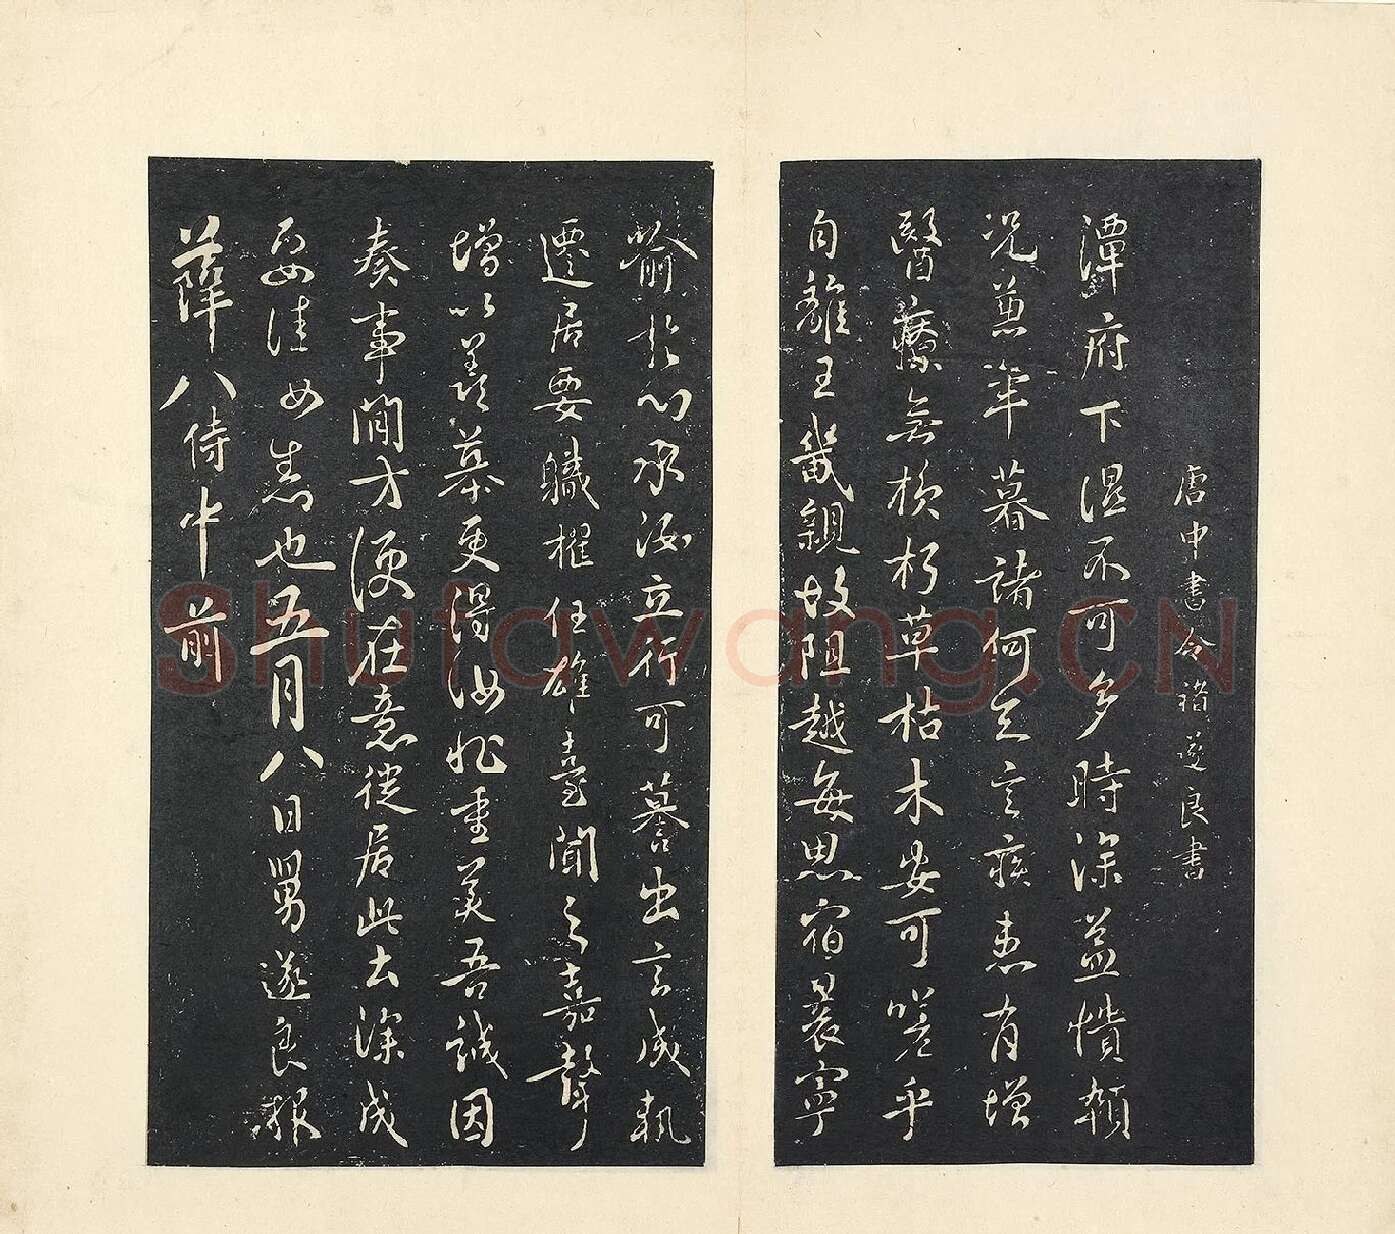 唐中書令褚遂良書
潭府下濕不可多時深益憒頓
況兼年暮諸何足言疾患有增
醫療無損朽草枯木安可嗟乎
自離王畿親故阻越每思宿昔寧
喻於心承汝立行可䒺出言成軌
遷居要職櫂任雄臺聞之嘉聲
增以羨慕更得汝非重美吾誠因
奏事閒方便在意從居此去深成
要佳如悉也五月八日舅遂良報
薛八侍中前
Shufawang.CN